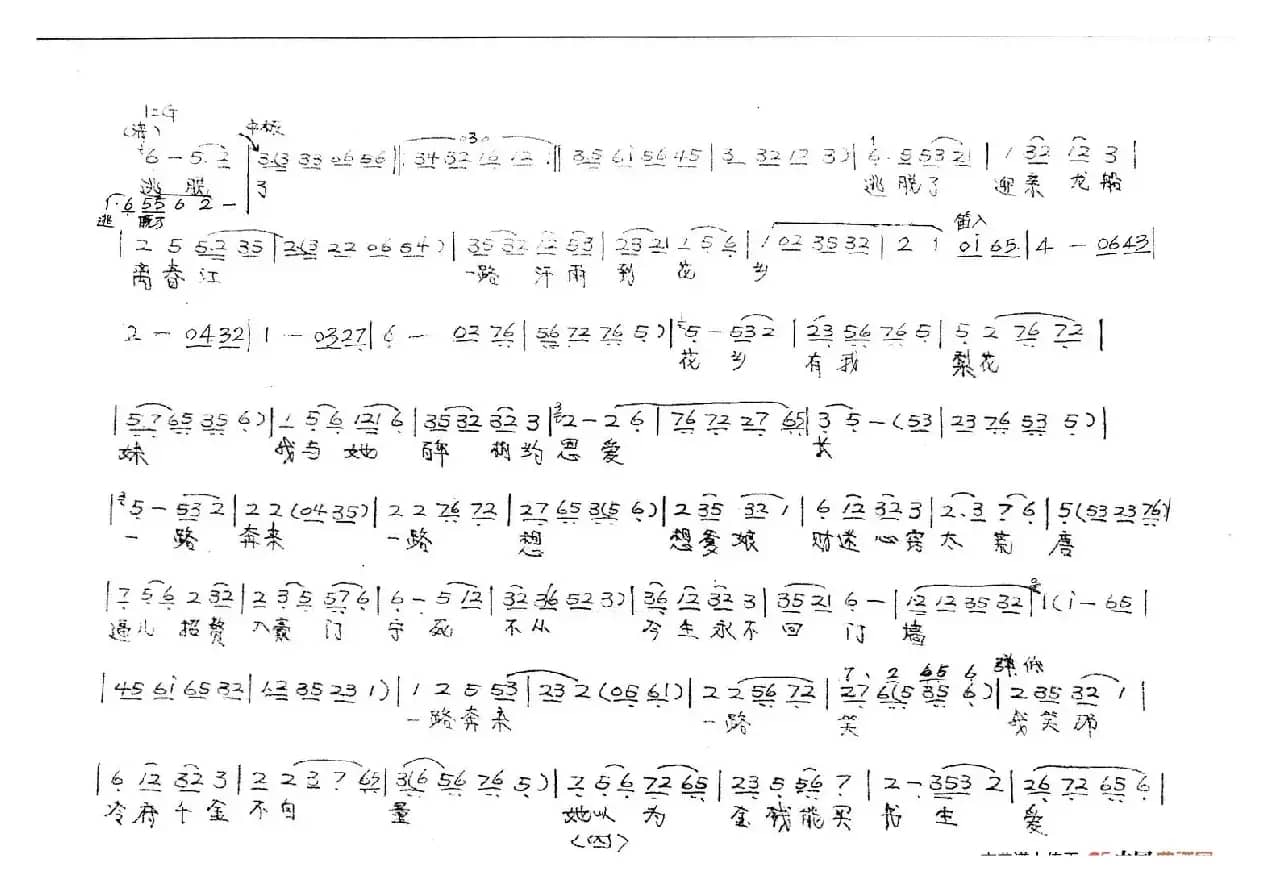 1=G
(清) 中板
6 — 5.2 | 3(3 33 056 56 | 34 32 16 12 :|| 35 6i 56 45 | 3 32 12 3) | 6. 5 53 21 | 1 32 12 3 |
逃脱 了 逃脱了 迎亲龙船
1. 6 55 6 2 —
逃 脱了
| 2 5 5.2 35 | 2(3 22 06 54) | 35 32 12 53 | 23 21 1 5 6 | 1 02 35 32 | 2 1 0i 65. | 4 — 0643 |
笛入
离春江 一路汗雨到花乡
2 — 0432 | 1 — 0327 | 6 — 03 76 | 56 72 76 5) | 5 — 532 | 23 56 76 5 | 5 2 76 72 |
花乡 有我 梨花
| 5.7 65 35 6) | 1 5 6 121 6 | 35 32 32 3 | 2 — 2 6 | 76 72 27 65 | 3 5 — (53 | 23 76 53 5) |
妹 我与她 相约恩爱 长
| 5 — 532 | 2 2 (04 35) | 2 2 76 72 | 27 65 3(5 6) | 2 35 32 1 | 6 12 32 3 | 2.3 7 6 | 5 (53 23 76) |
一路 奔来 一路 想 想爹娘 财迷心窍太荒唐
| 7 5 6 2 32 | 2 3 5 57 6 | 6 — 5 12 | 32 36 52 3) | 36 12 32 3 | 35 21 6 — | 12 12 35 32 | 1 (i — 65 |
逼儿招赘 入豪门 守死 不从 今生永不回门墙
| 45 6i 65 32 | 12 35 23 1) | 1 2 5 53 | 23 2 (05 61) | 2 2 56 72 | 27 6(5 35 6) | 2 35 32 1 |
7. 2 65 6
一路奔来 一路 笑 我笑那
| 6 12 32 3 | 2 2 3 7 65 | 3(6 56 76 5) | 2 5 6 72 65 | 23 5 56 7 | 2 — 353 2 | 26 72 65 6 |
冷府千金不自 量 她以为 金钱能买书生 爱
(四)